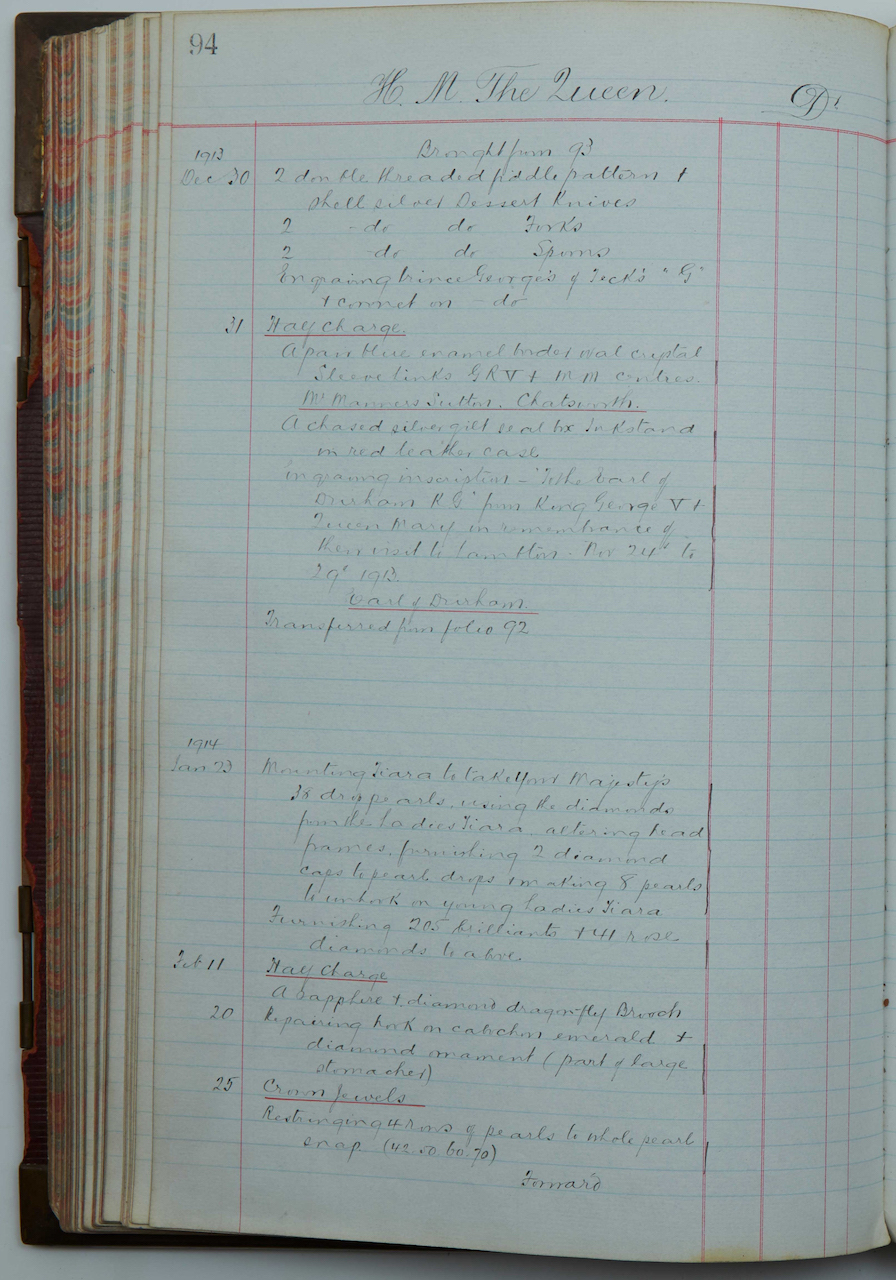 94
H. M. The Queen.
Dr
1913
Brought from 93
Dec 30 2 double threaded fiddle pattern +
shell silver Dessert Knives
2 - do do Forks
2 - do do Spoons
Engraving Prince George's of Teck's "G"
+ coronet on - do
31 Half Charge.
A pair blue enamel border oval crystal
Sleeve links G R V + M M centres.
Mr Manners Sutton. Chatsworth.
A chased silver gilt seal box Inkstand
in red leather case
Engraving inscription - "To the Earl of
Durham K G" from King George V +
Queen Mary in remembrance of
their visit to Lambton. Nov 24th to
29th 1913.
Earl of Durham.
Transferred from folio 92
1914
Jan 23 Mounting Tiara to take Your Majesty's
38 drop pearls, using the diamonds
from the Ladies Tiara, altering head
frames, furnishing 2 diamond
caps to pearl drops + making 8 pearls
to unhook on young ladies Tiara
Furnishing 205 brilliants + 41 rose
diamonds to above
Feb 11 Half Charge
A sapphire + diamond dragon-fly Brooch
20 Repairing hook on cabochon emerald +
diamond ornament (part of large
stomacher)
25 Crown Jewels
Restringing 4 rows of pearls to whole pearl
snap (42. 50. 60. 70)
Forward